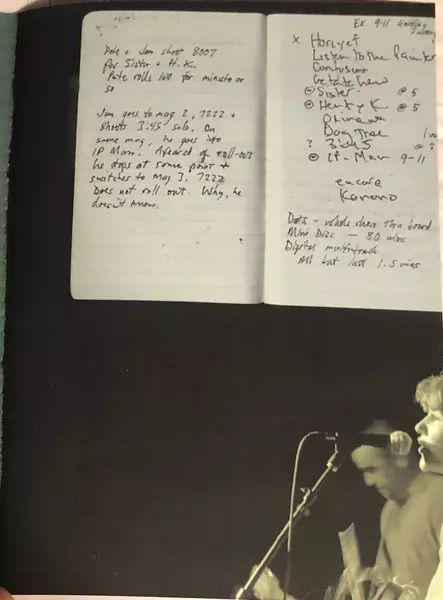 Pete + Jem shoot 8007
for Sister + H.K.
Pete rolls out for minute or
so
Jem goes to mag 2, 7222 +
shoots 3:45 solo. On
same mag, he goes into
IP Man. Afeared of roll-out
he stops at some point +
switches to Mag 3, 7222
Does not roll out. Why, he
doesn't know.
Ex 9-11 Knitting Factory
x Horcyet
Listen to the Painter
Confusion
Getatchew
Sister @ 5
Henry K. @ 5
Dog Tree
? 3:45 @ 5
IP-Man 9-11
encore
Konono
Dats - whole show thru board
Mini Disc - 80 mins
Digital multitrack
All but last 1.5 mins